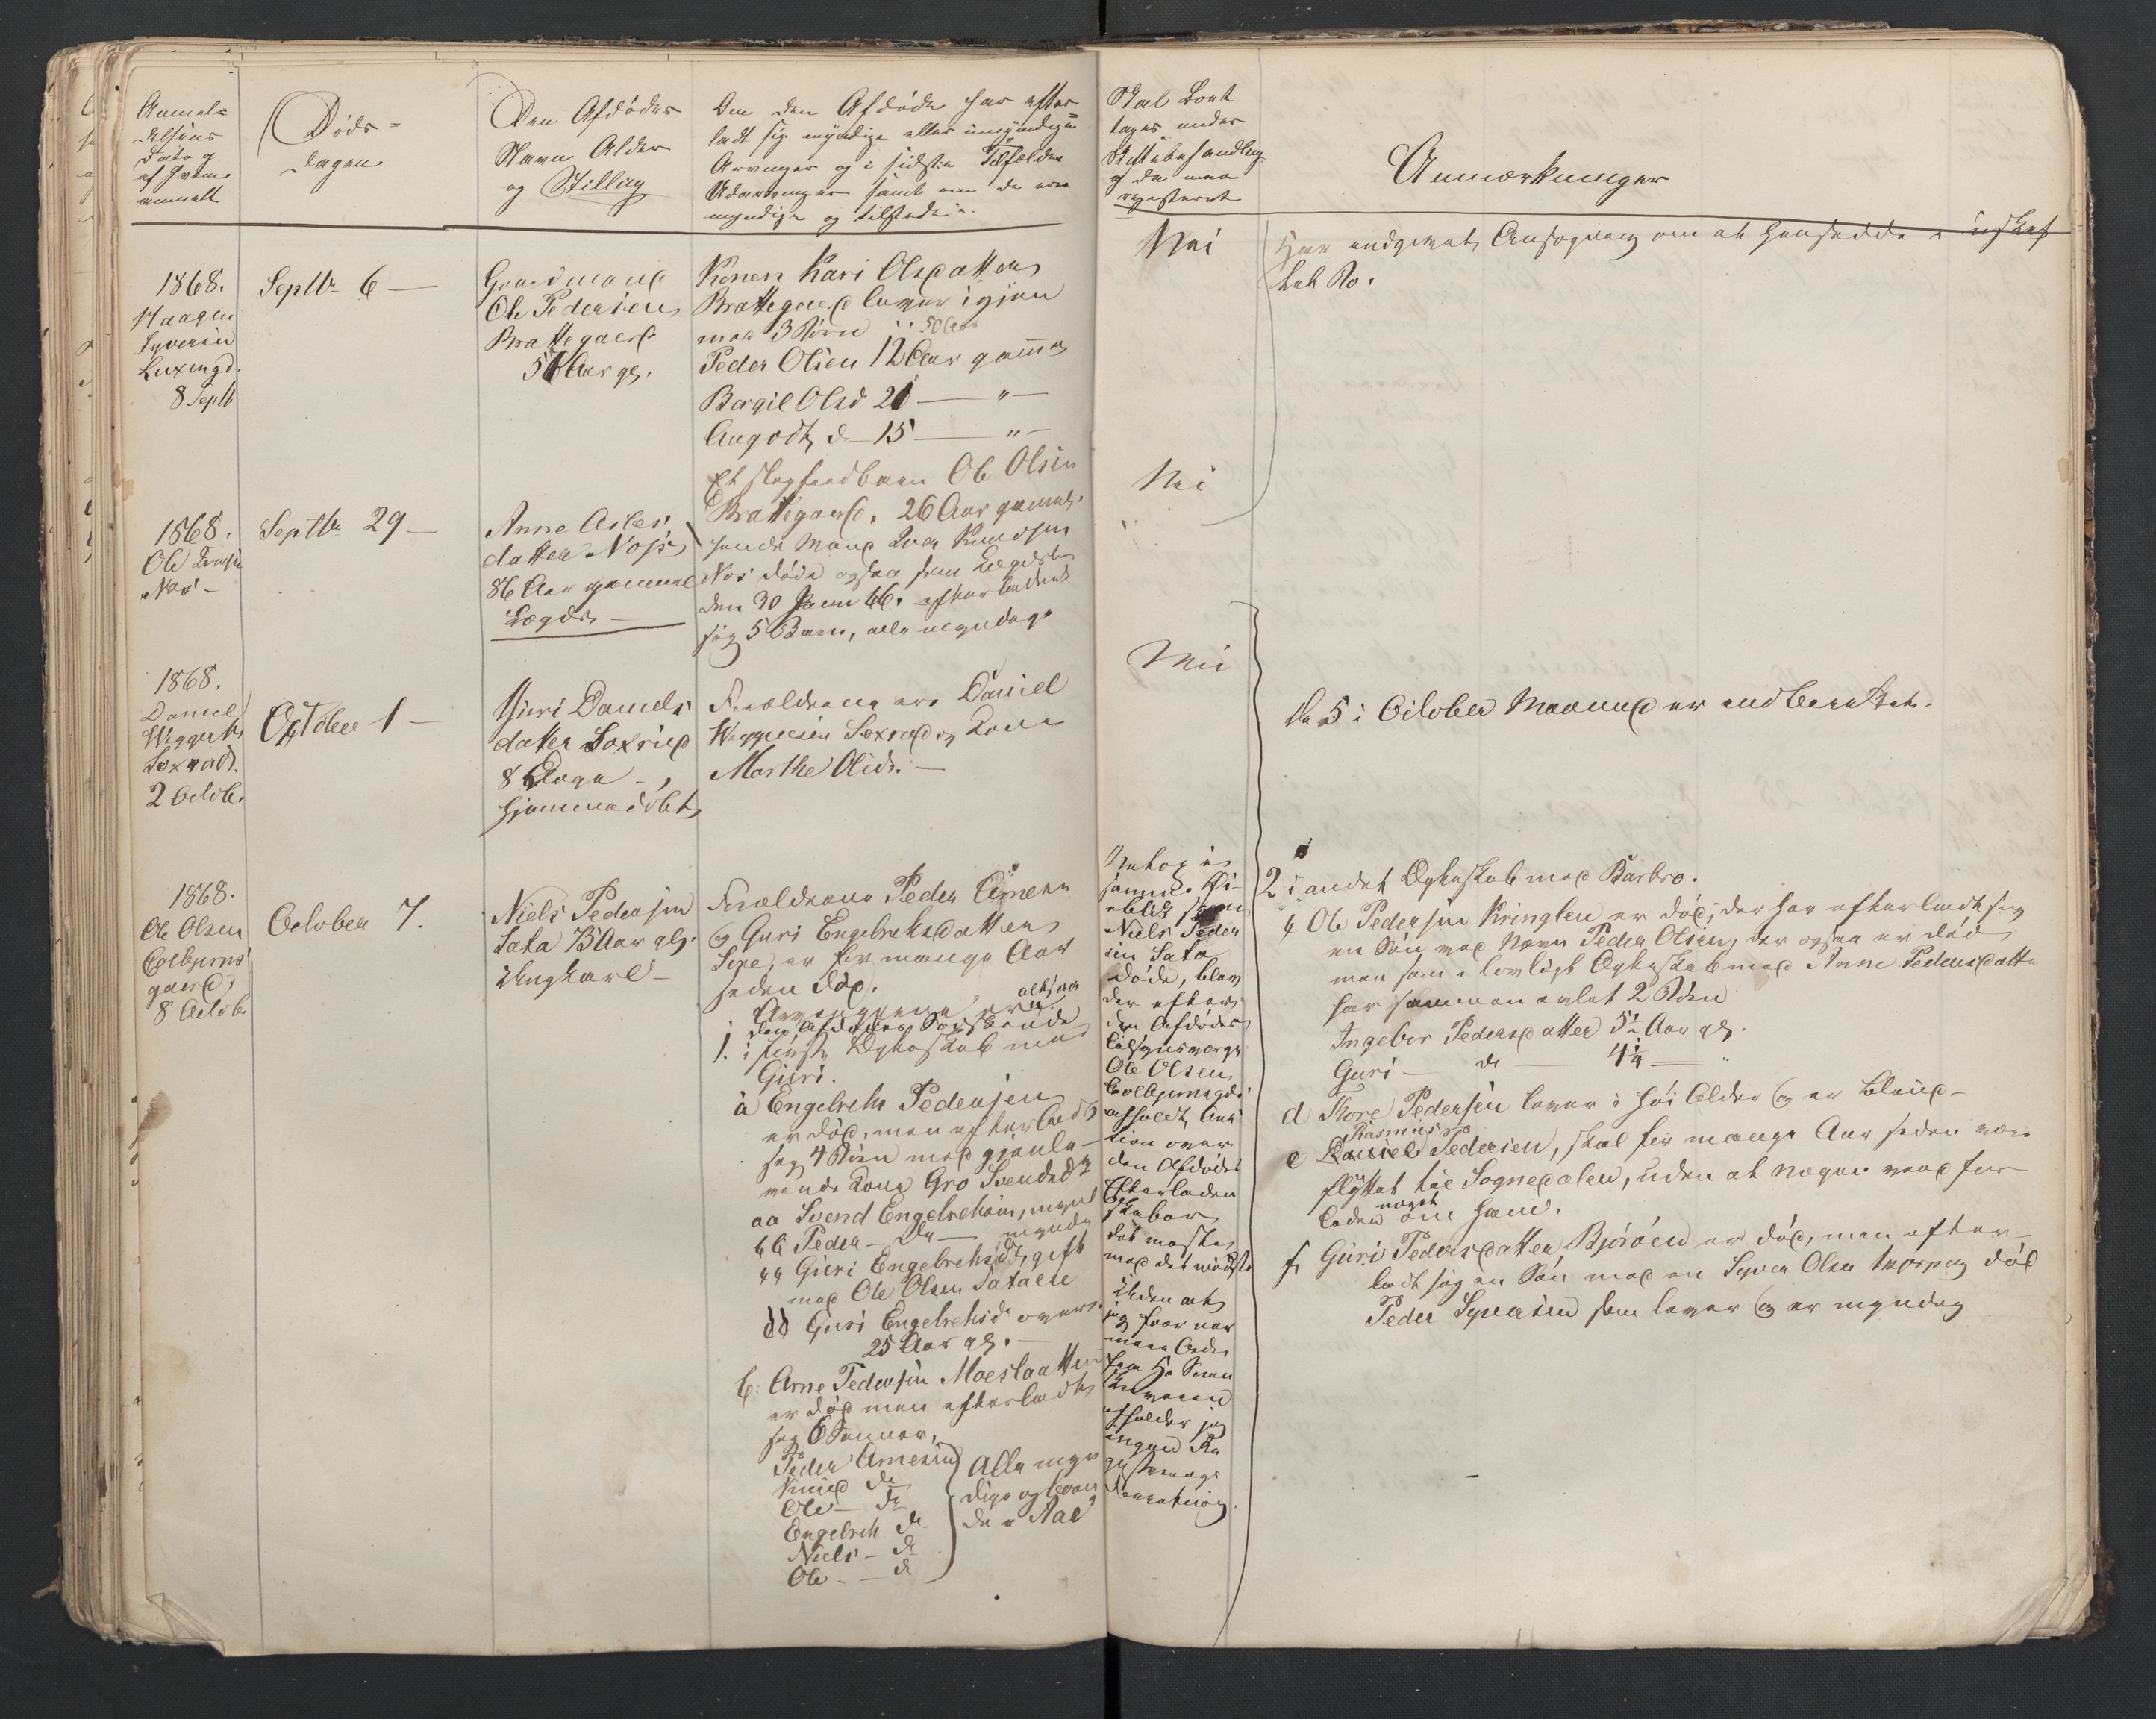 Anmel=
delsens
Dato og
af hvem
anmeldt
Døds=
dagen
Den Afdødes
Navn Alder
og Stilling
Om den Afdøde har efter=
ladt sig myndige eller umyndige
Arvinger og i sidste Tilfælde
Udarvinger samt om de ere
myndige og tilstede
Skal Boet
tages under
Skiftebehandling
og da
registeret
Anmærkninger
1868.
Haagen
Syversen
Luxengd.
8 Septb
Septbr 6 —
Gaardmand
Ole Pedersen
Brattegard
Aar gl.
Konen Kari Olsdatter
Brattegard lever igjen
med 3 Børn
50 Aar
Peder Olsen 12 Aar gammel
Bergit Olsd 21 — " —
Angodt d — 15 — " —
Et Slegfredbarn Ole Olsen
Brattegard. 26 Aar gammel.
Nei
Har andget Ansøgning om at hensidde i uskiftet
Bo.
Nei
1868.
Ole
Nos —
Septbr 29 —
Anne Asles
datter Nos
86 Aar gammel
Lægds —
hendes Mand Iver Knudsen
Nos døde ogsaa som Lægdsl
den 30 66. efterladende
sig 5 Børn, alle myndige
Nei
1868.
Daniel
Loxred.
2 Octob.
October 1 —
Guri Daniels
datter Loxrud
8 Dage —,
hjemmedøbt
Forældrene ere Daniel
og Kone
Marthe Olsdr. —
den 5 i October Maaned er indberettet.
1868.
Ole Olsen
Eolbjørns
gaard
8 Octob.
October 7.
Niels Pedersen
Sata 75 Aar gl.
Ungkarl —
Forældrene Peder Arnesen
og Guri Engebrehsdatter
er for mange Aar
siden død.
Arvingerne ere altsaa
den Afdødes Søskende
1. i første Ægteskab med
Guri.
a Engebreht Pedersen
er død, men efterladt
sig 4 Børn med gjenle—
vende Kone Gro Svendsdr
aa Svend Engebrehsen, mynd
bb Peder — do — myndig
cc Guri Engebrehsdr, gift
med Ole Olsen Sataeie
dd Guri Engebrehsdr over
25 Aar gl. —
b: Arne Pedersen Moeslaatten
er død men efterladt
sig 6 Sønner,
Peder Arnesen
Knud do
Ole — do
Engebreh do
Niels — do
Ole — do
Alle myn
dige og boen
de i Aal
Netop i
samme Øi—
eblik som
Niels Peder
sen Sata
døde, blev
der efter
den Afdødes
Tilsynsværge
Ole Olsen
Eolbjørnsgd.
afholdt Auk
tion over
den Afdødes
Efterladen
skaber,
det meste
med det mindste
Uden at
jeg faar nær
mere Ordre
fra Hr Soren
skriveren
afholder jeg
ingen Re
gistrerings
forretning.
2 i andet Ægteskab med Barbro.
c Ole Pedersen Kringlen er død, der har efterladt sig
en Søn ved Navn Peder Olsen, der ogsaa er død
men som i lovligt Ægteskab med Anne Pedersdatter
har sammen avlet 2 Børn
Ingebor Pedersdatter 5½ Aar gl.
Guri — do — 4¼ — "
d Thore Pedersen lever i høi Alder og er blind —
Rasmus
e Daniel Pedersen, skal for mange Aar siden være
flyttet til Sognedalen, uden at nogen veed for—
noget
om ham.
f Guri Pedersdatter Bjøröen er død, men efter—
ladt sig en Søn med en Syver Olsen død
Peder Syversen som lever og er myndig